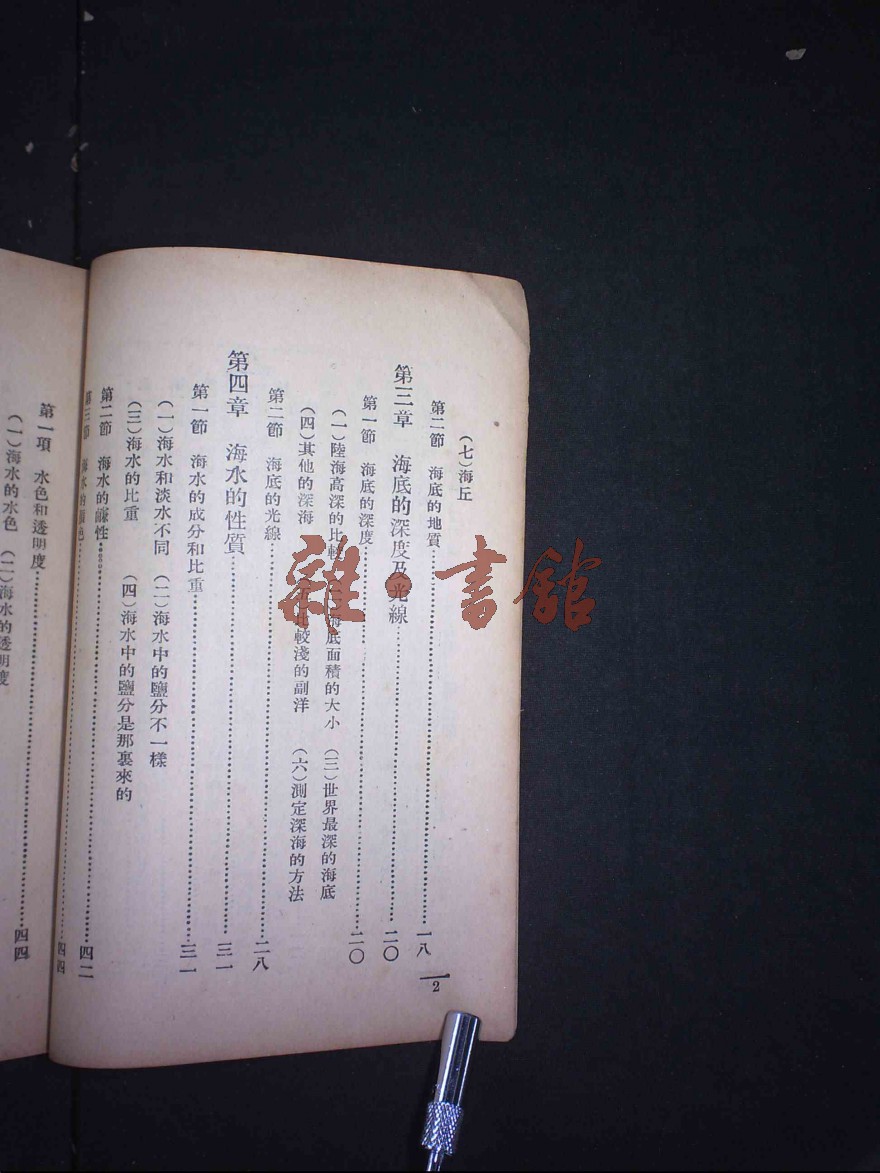 (七)海丘
第二節 海底的地質……一八
第三章 海底的深度及光線……二〇
第一節 海底的深度……二〇
(一)陸海高深的比較 (二)海底面積的大小 (三)世界最深的海底
(四)其他的深海 (五)比較淺的副洋 (六)測定深海的方法
第二節 海底的光線……二八
第四章 海水的性質……三一
第一節 海水的成分和比重……三一
(一)海水和淡水不同 (二)海水中的鹽分不一樣
(三)海水的比重 (四)海水中的鹽分是那裏來的
第二節 海水的鹹性……四二
第三節 海水的顏色……四四
第一項 水色和透明度……四四
(一)海水的水色 (二)海水的透明度
2
雜·書館